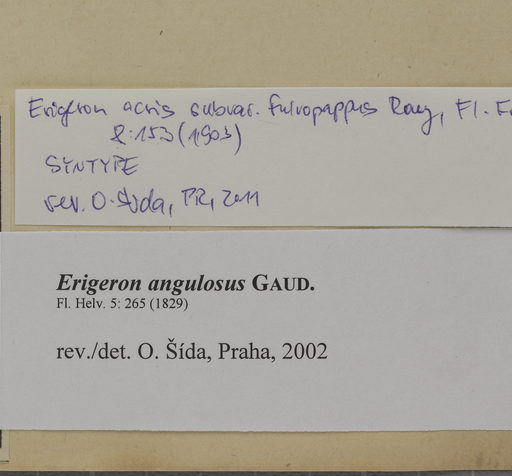 Erigeron acris subvar. fulvopappus Rouy, Fl. F
8:153 (1903)
SYNTYPE
rev. O. Šída, PR, 2011
Erigeron angulosus GAUD.
Fl. Helv. 5: 265 (1829)
rev./det. O. Šída, Praha, 2002